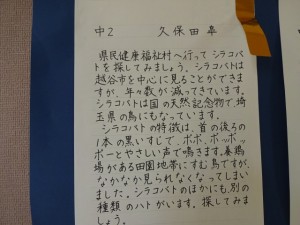 中2 久保田 幸
県民健康福祉村へ行って シラコバ
トを探してみましょう。シラコバトは
越谷市を中心に見ることができま
すが、年々数が減ってきています。
シラコバトは国の天然記念物で、埼
玉県の鳥にもなっています。
シラコバトの特徴は、首の後ろの
1本の黒いすじで、ポポ、ポッポッ
ポーとやさしい声で鳴きます。養鶏
場がある田園地帯にすむ鳥ですが、
なかなか見られなくなってしまい
ました。シラコバトのほかにも、別の
種類のハトがいます。探してみま
しょう。